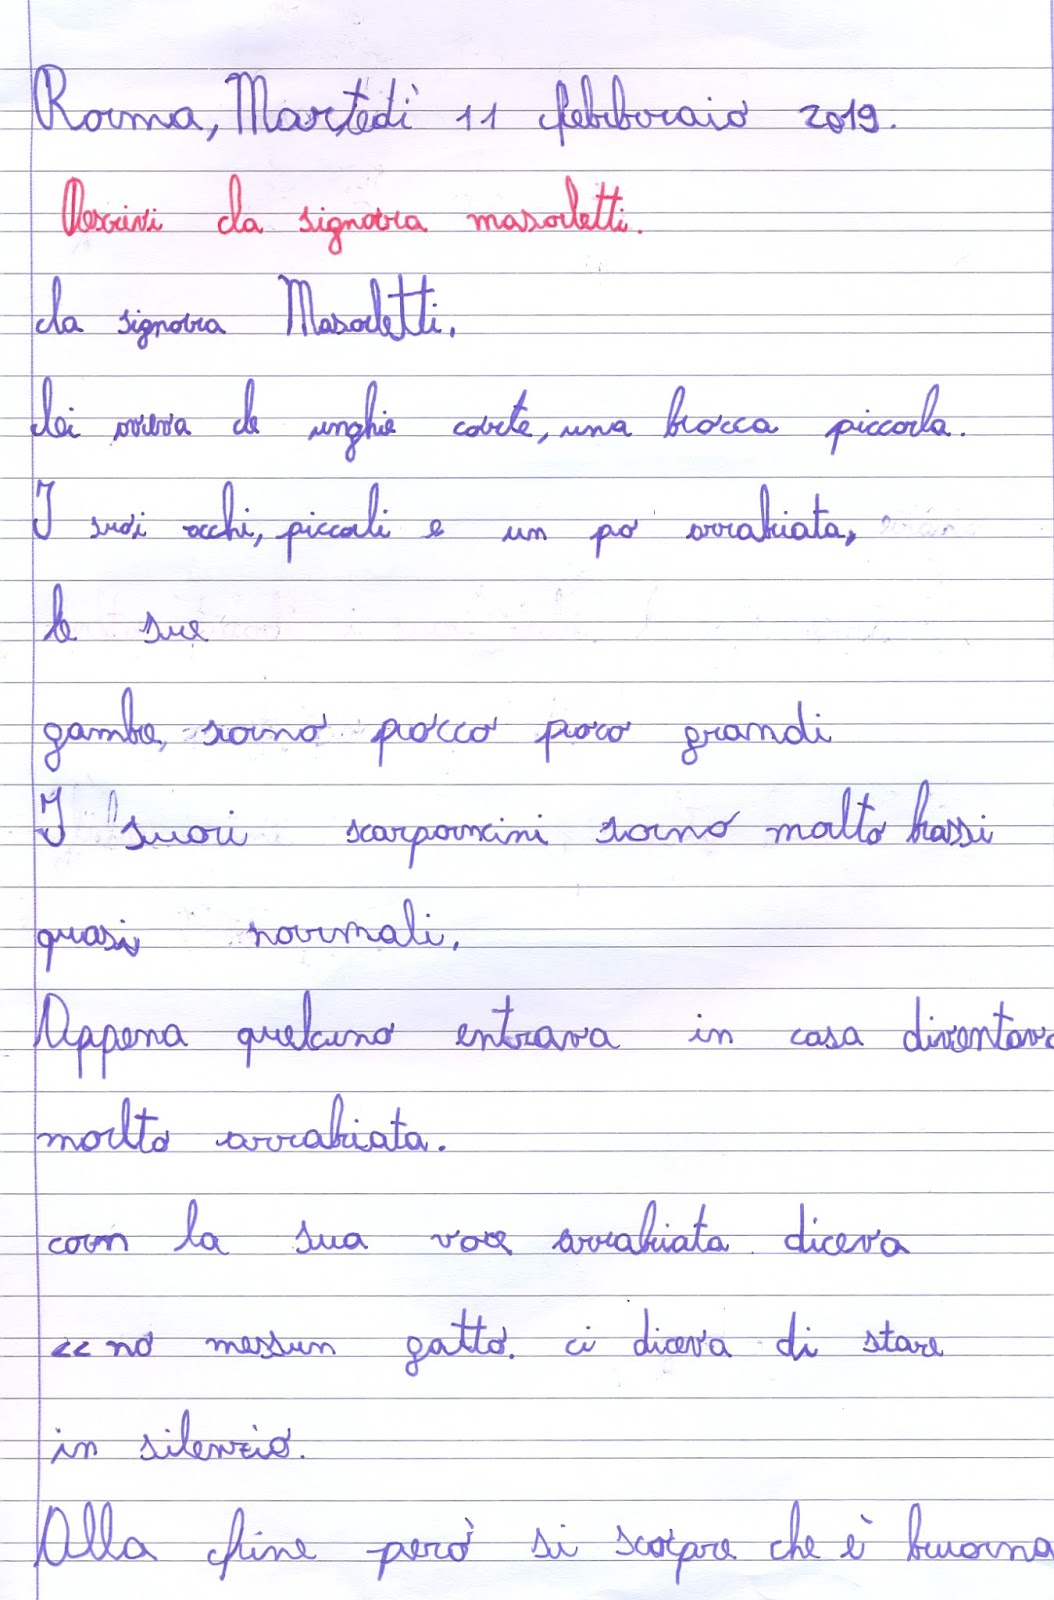 Roma, Martedì 11 febbraio 2019.
Descrivi la signora masoletti.
la signora Masoletti.
lei aveva le unghie corte, una bocca piccola.
I suoi occhi, piccoli e un po arrabiata,
le sue
gambe, sono pocco poco grandi
I suoi scarponcini sono molto bassi
quasi normali.
Appena quelcuno entrava in casa diventava
molto arrabiata.
con la sua voce arrabiata diceva
<< no messun gatto. ci diceva di stare
in silenzio.
Alla fine però si scopre che è buona